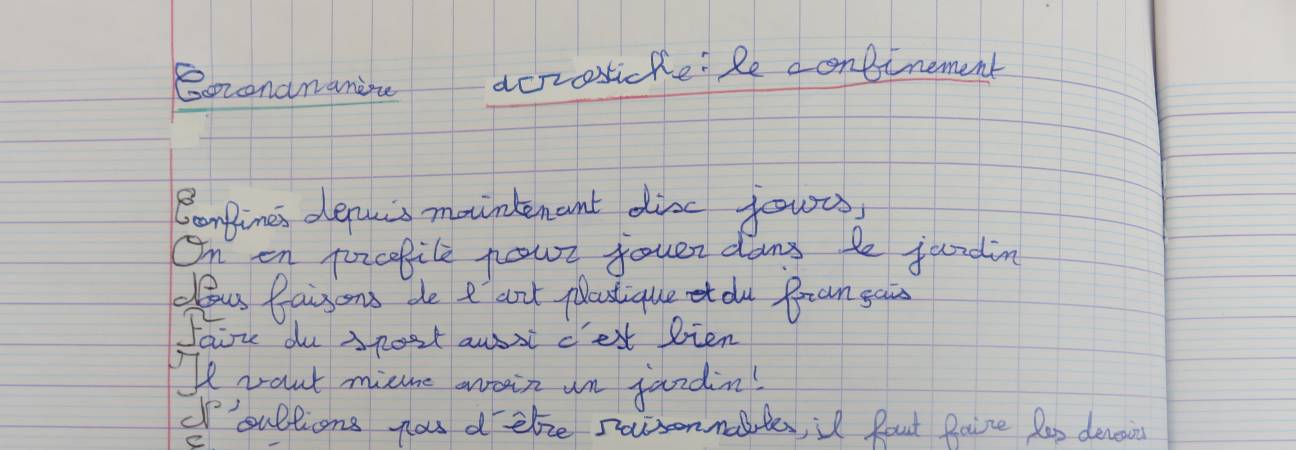 acrostiche: le confinement
Confinés depuis maintenant dix jours,
On en profite pour jouer dans le jardin
Nous faisons de l'art plastique et du français
Faire du sport aussi c'est bien
Il vaut mieux avoir un jardin!
N'oublions pas d'être raisonnables, il faut faire les devoirs